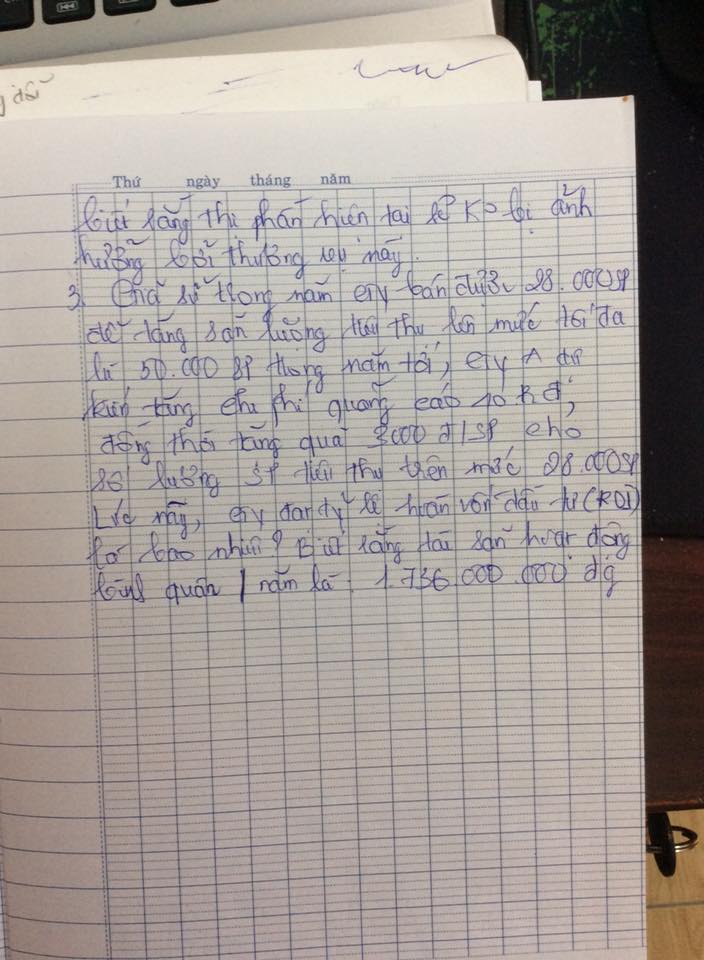 g dẫn
Thứ ngày tháng năm
biết rằng thị phần hiện tại sẽ Ko bị ảnh
hưởng bởi thương vụ này.
3. Giả sử trong năm cty bán được 28.000SP
để tăng sản lượng tiêu thụ lên mức tối đa
là 50.000 SP trong năm tới, cty A dự
kiến tăng chi phí quảng cáo 40
đồng thời tặng quà 3000 đ/SP cho
số lượng SP tiêu thụ trên mức 28.000SP
Lúc này, cty đạt tỷ lệ hoàn vốn đầu tư (ROI)
là bao nhiêu? Biết rằng tài sản hoạt động
bình quân 1 năm là 1.736.000.000 đg